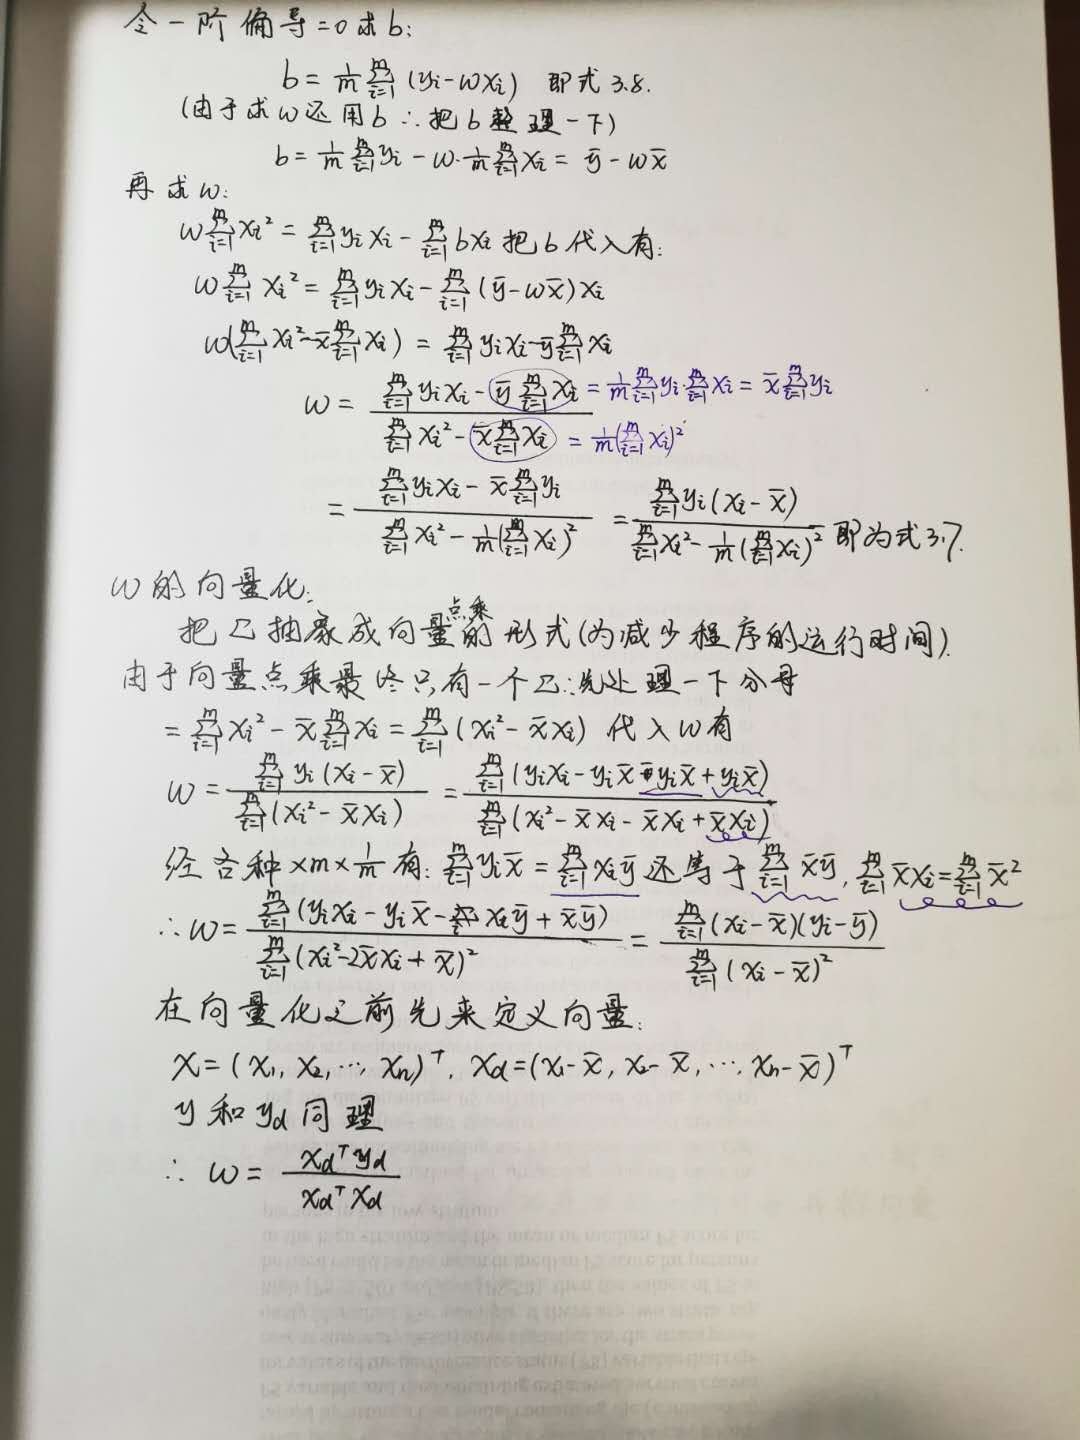 令一阶偏导=0求b:
b = 1/m ∑_{i=1}^{m} (yi-wxi) 即式3.8.
(由于求w还用b ∴把b整理一下)
b = 1/m ∑_{i=1}^{m} yi - w·1/m ∑_{i=1}^{m} xi = ȳ - wx̄
再求w:
w∑_{i=1}^{m} xi² = ∑_{i=1}^{m} yixi - ∑_{i=1}^{m} bxi 把b代入有:
w∑_{i=1}^{m} xi² = ∑_{i=1}^{m} yixi - ∑_{i=1}^{m} (ȳ-wx̄)xi
w(∑_{i=1}^{m} xi² - x̄∑_{i=1}^{m} xi) = ∑_{i=1}^{m} yixi - ȳ∑_{i=1}^{m} xi
w = (∑_{i=1}^{m} yixi - ȳ∑_{i=1}^{m} xi) / (∑_{i=1}^{m} xi² - x̄∑_{i=1}^{m} xi)
= 1/m ∑_{i=1}^{m} yi·∑_{i=1}^{m} xi = x̄∑_{i=1}^{m} yi
= 1/m (∑_{i=1}^{m} xi)²
= (∑_{i=1}^{m} yixi - x̄∑_{i=1}^{m} yi) / (∑_{i=1}^{m} xi² - 1/m(∑_{i=1}^{m} xi)²) = ∑_{i=1}^{m} yi(xi-x̄) / (∑_{i=1}^{m} xi² - 1/m(∑_{i=1}^{m} xi)²) 即为式3.7.
w的向量化:
把∑抽象成向量点乘的形式(为减少程序的运行时间).
由于向量点乘最终只有一个∑∴先处理一下分母
= ∑_{i=1}^{m} xi² - x̄∑_{i=1}^{m} xi = ∑_{i=1}^{m} (xi² - x̄xi) 代入w有
w = ∑_{i=1}^{m} yi(xi-x̄) / ∑_{i=1}^{m} (xi² - x̄xi) = ∑_{i=1}^{m} (yixi - yix̄ - yix̄ + yix̄) / ∑_{i=1}^{m} (xi² - x̄xi - x̄xi + x̄xi)
经各种×m×1/m有: ∑_{i=1}^{m} yix̄ = ∑_{i=1}^{m} xiȳ 还等于 ∑_{i=1}^{m} x̄ȳ, ∑_{i=1}^{m} x̄xi = ∑_{i=1}^{m} x̄²
∴w = ∑_{i=1}^{m} (yixi - yix̄ - xiȳ + x̄ȳ) / ∑_{i=1}^{m} (xi² - 2x̄xi + x̄)² = ∑_{i=1}^{m} (xi-x̄)(yi-ȳ) / ∑_{i=1}^{m} (xi-x̄)²
在向量化之前先来定义向量:
x = (x₁, x₂, …, xn)ᵀ. xd = (x₁-x̄, x₂-x̄, …, xn-x̄)ᵀ
y和yd同理
∴ w = xdᵀyd / xdᵀxd